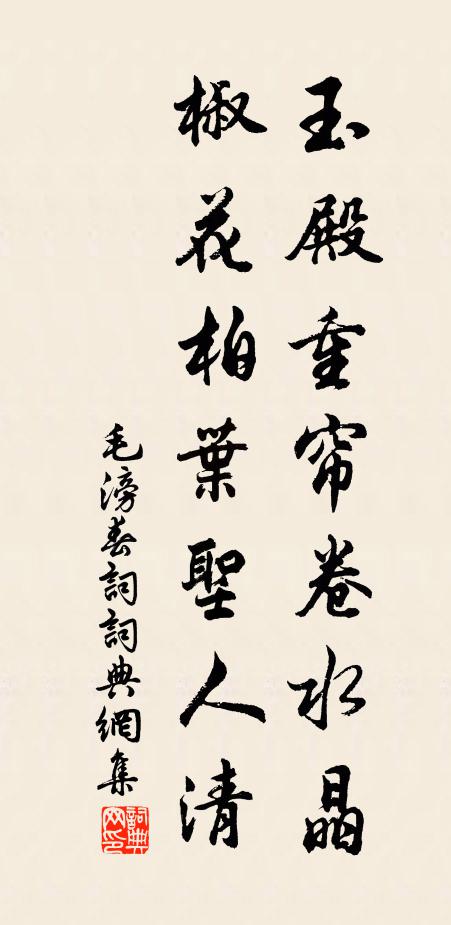 玉殿重帘卷水晶
椒花柏葉聖人清
毛滂春詞詞典網集
詞典
网印